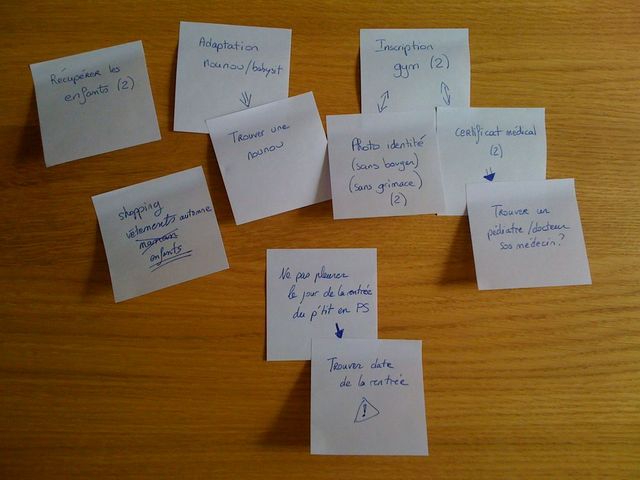 Récupérer les
enfants (2)
Adaptation
nounou/babysit
Trouver une
nounou
Inscription
gym (2)
Photo identité
(sans bouger)
(sans grimace)
(2)
Certificat médical
(2)
Trouver un
pédiatre/docteur
sos médecin?
shopping
vêtements automne
maman
enfants
Ne pas pleurer
le jour de la rentrée
du p'tit en PS
Trouver date
de la rentrée
!